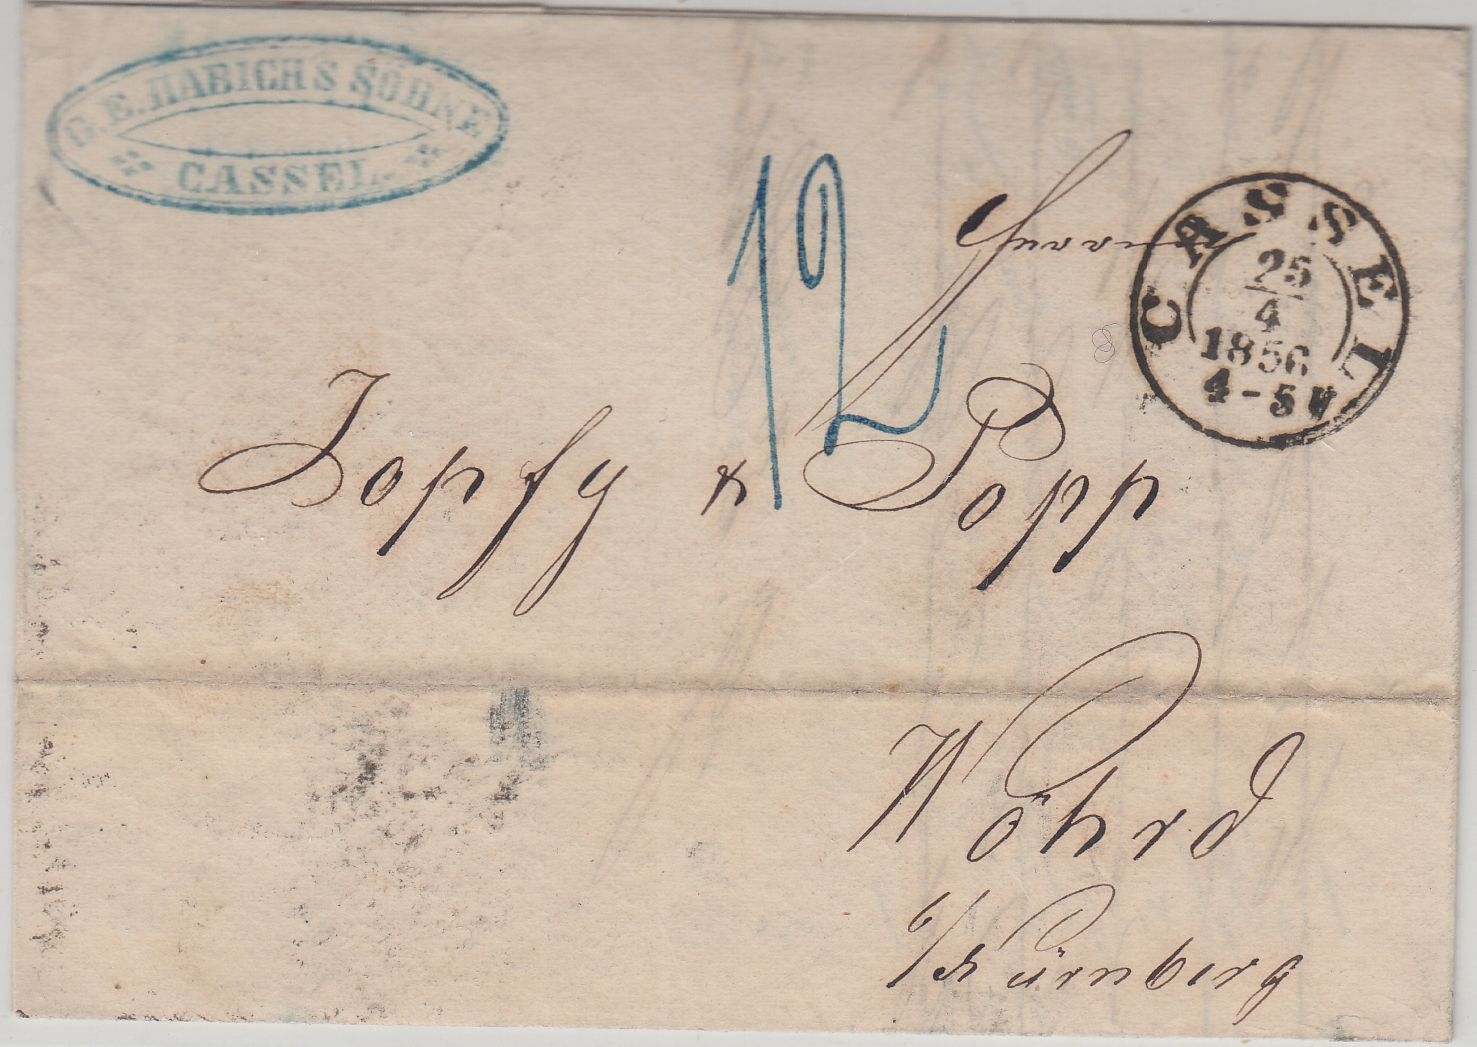 G. E. HABICHS SÖHNE
CASSEL.
12
Herren
CASSEL
25
4
1856
4-5 V
Zopfy & Popp
Wöhrd
b/Nürnberg